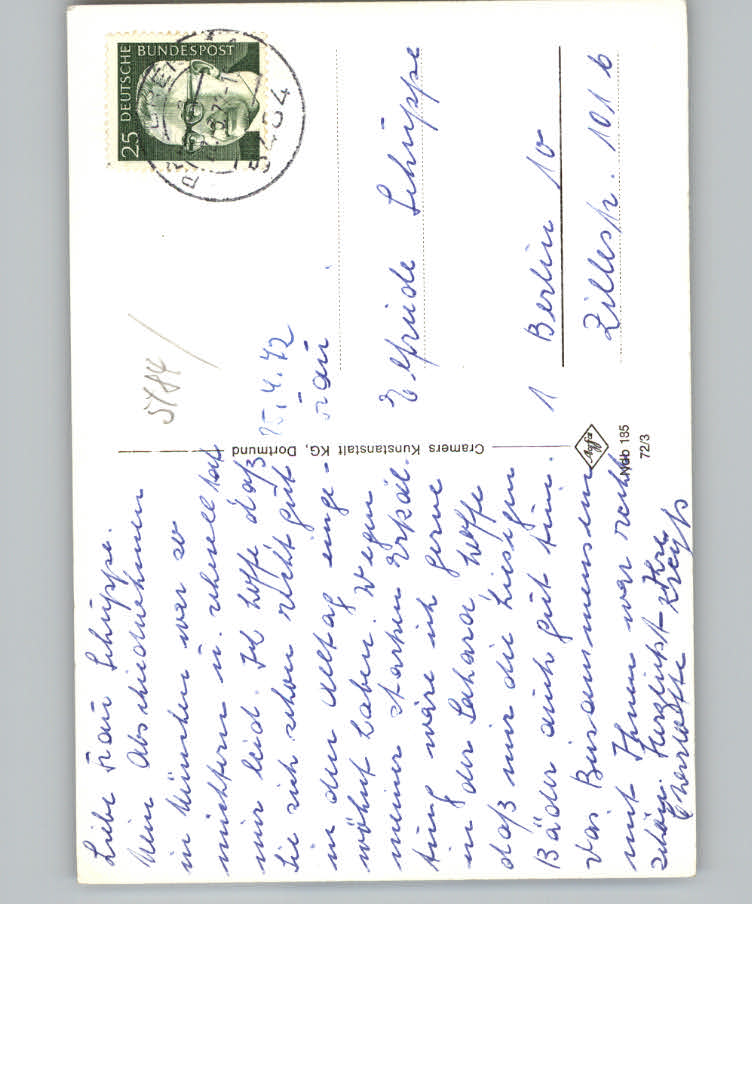 25 DEUTSCHE BUNDESPOST
8204
5484
25.4.72
Liebe Frau Schüppe.
Mein Abschiednehmen
in München war so
nüchtern u. schnell tat
mir leid. Ich hoffe daß
Sie sich schon recht gut
in den Alltag einge-
wöhnt haben. Wegen
meiner starken Erkäl-
tung wäre ich gerne
in der Sahara, hoffe
daß mir die hiesigen
Bäder auch gut tun.
Das Beisammensein
mit Ihnen war recht
schön. Herzlichst Ihre
Charlotte
Cramers Kunstanstalt KG, Dortmund
Agfa
Ndb 185
72/3
Frau
Elfriede Schüppe
1 Berlin 10
Zillestr. 101 b